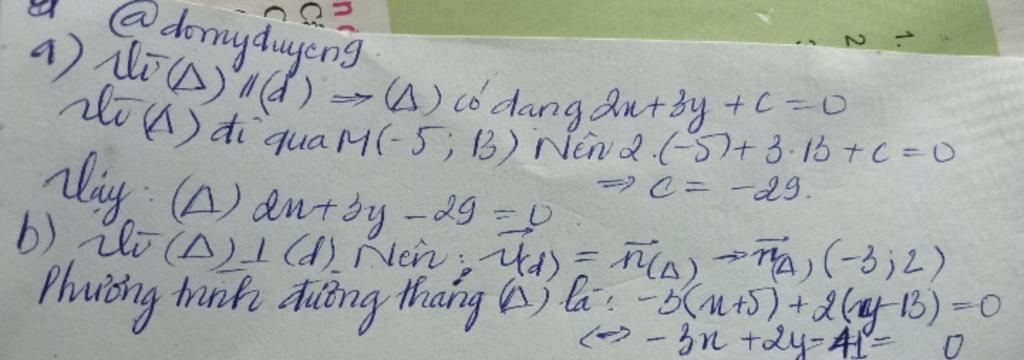 @domyduyeng
a) Vì (Δ) // (d) ⇒ (Δ) có dạng 2x+3y+c=0
Vì (Δ) đi qua M(-5; 13) Nên 2.(-5)+3.13+c=0
⇒ c = -29.
Vậy: (Δ) 2x+3y-29=0
b) Vì (Δ) ⊥ (d) Nên: u⃗(d) = n⃗(Δ) → n⃗(Δ) (-3;2)
Phương trình đường thẳng (Δ) là: -3(x+5)+2(y-13)=0
⇔ -3x+2y-41= 0
1.
2